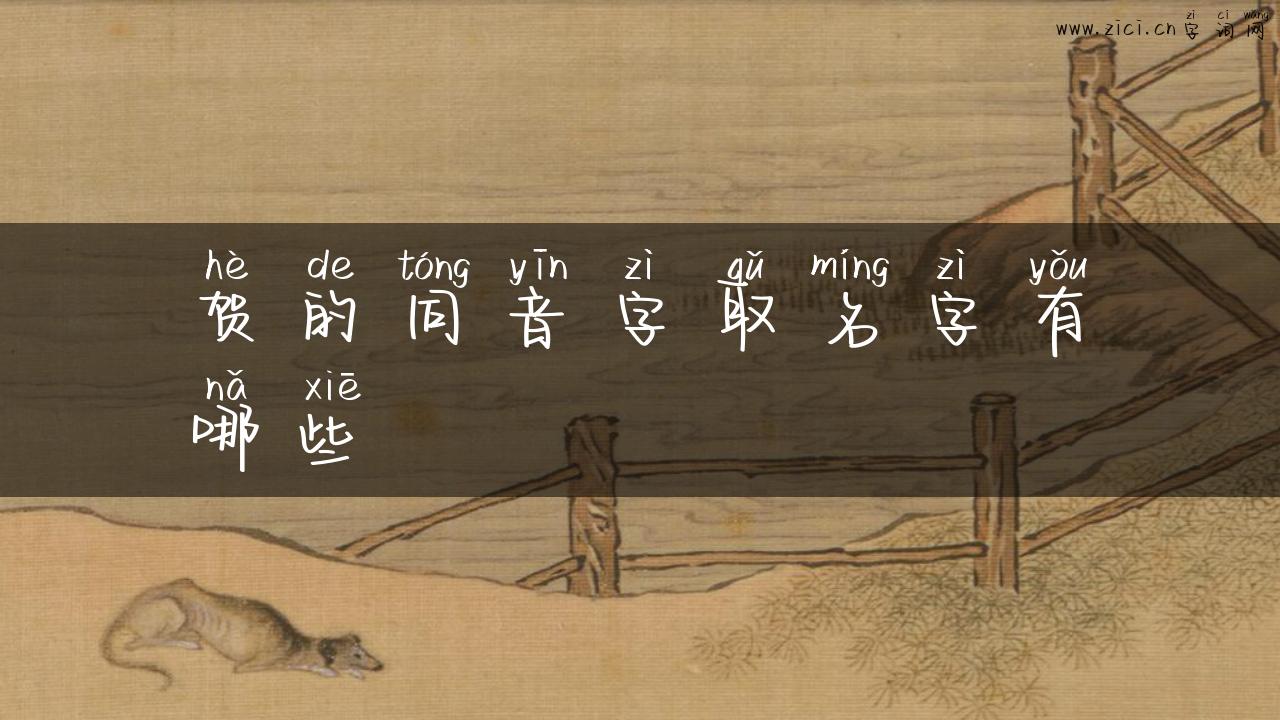 zì cí wǎng
www.zici.cn 字词网
hè de tóng yīn zì qǔ míng zì yǒu
贺的同音字取名字有
nǎ xiē
哪些